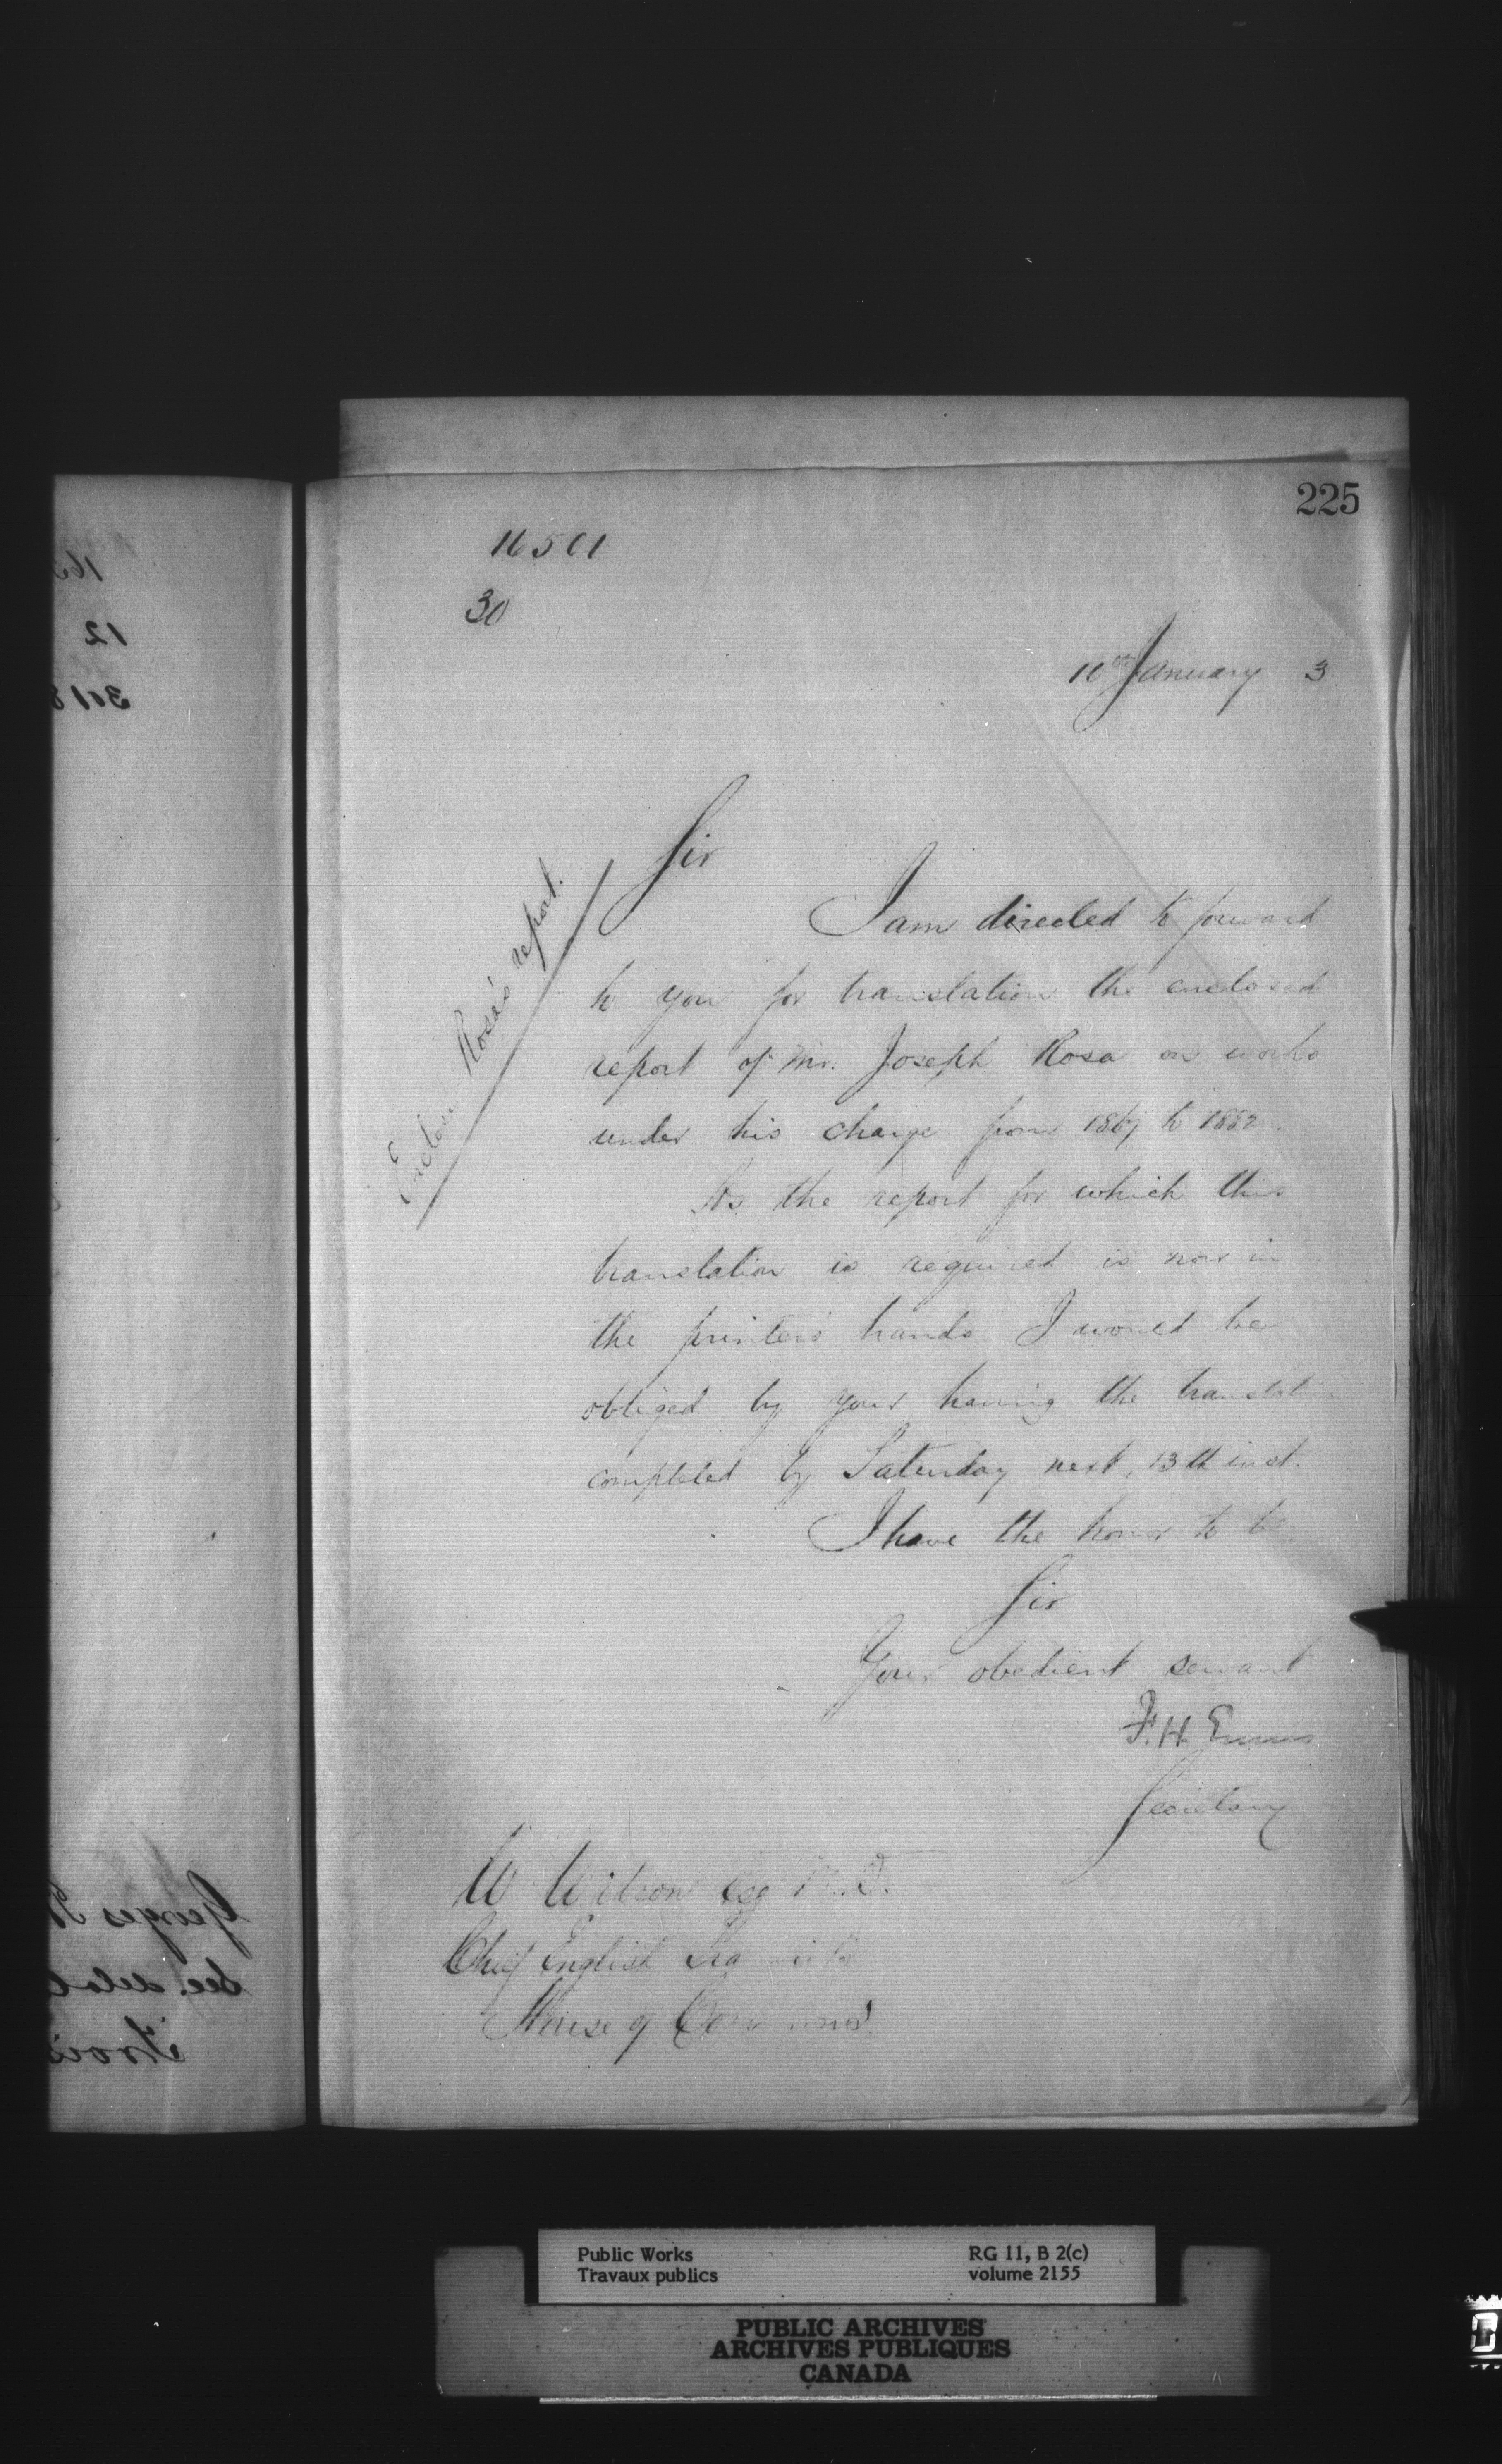 225
16501
30
10th January 3
Sir
Enclose Rosa's report.
I am directed to forward
to you for translation the enclosed
report of Mr. Joseph Rosa on works
under his charge from 1867 to 1882.
As the report for which this
translation is required is now in
the printers hands I would be
obliged by your having the
completed by Saturday next, 13th inst.
I have the honor to be
Sir
Your obedient servant
F. H. Ennis
Secretary
W Wilson Esq
Chief English
House of Commons
12
Georges
Public Works
Travaux publics
RG 11, B 2(c)
volume 2155
PUBLIC ARCHIVES
ARCHIVES PUBLIQUES
CANADA